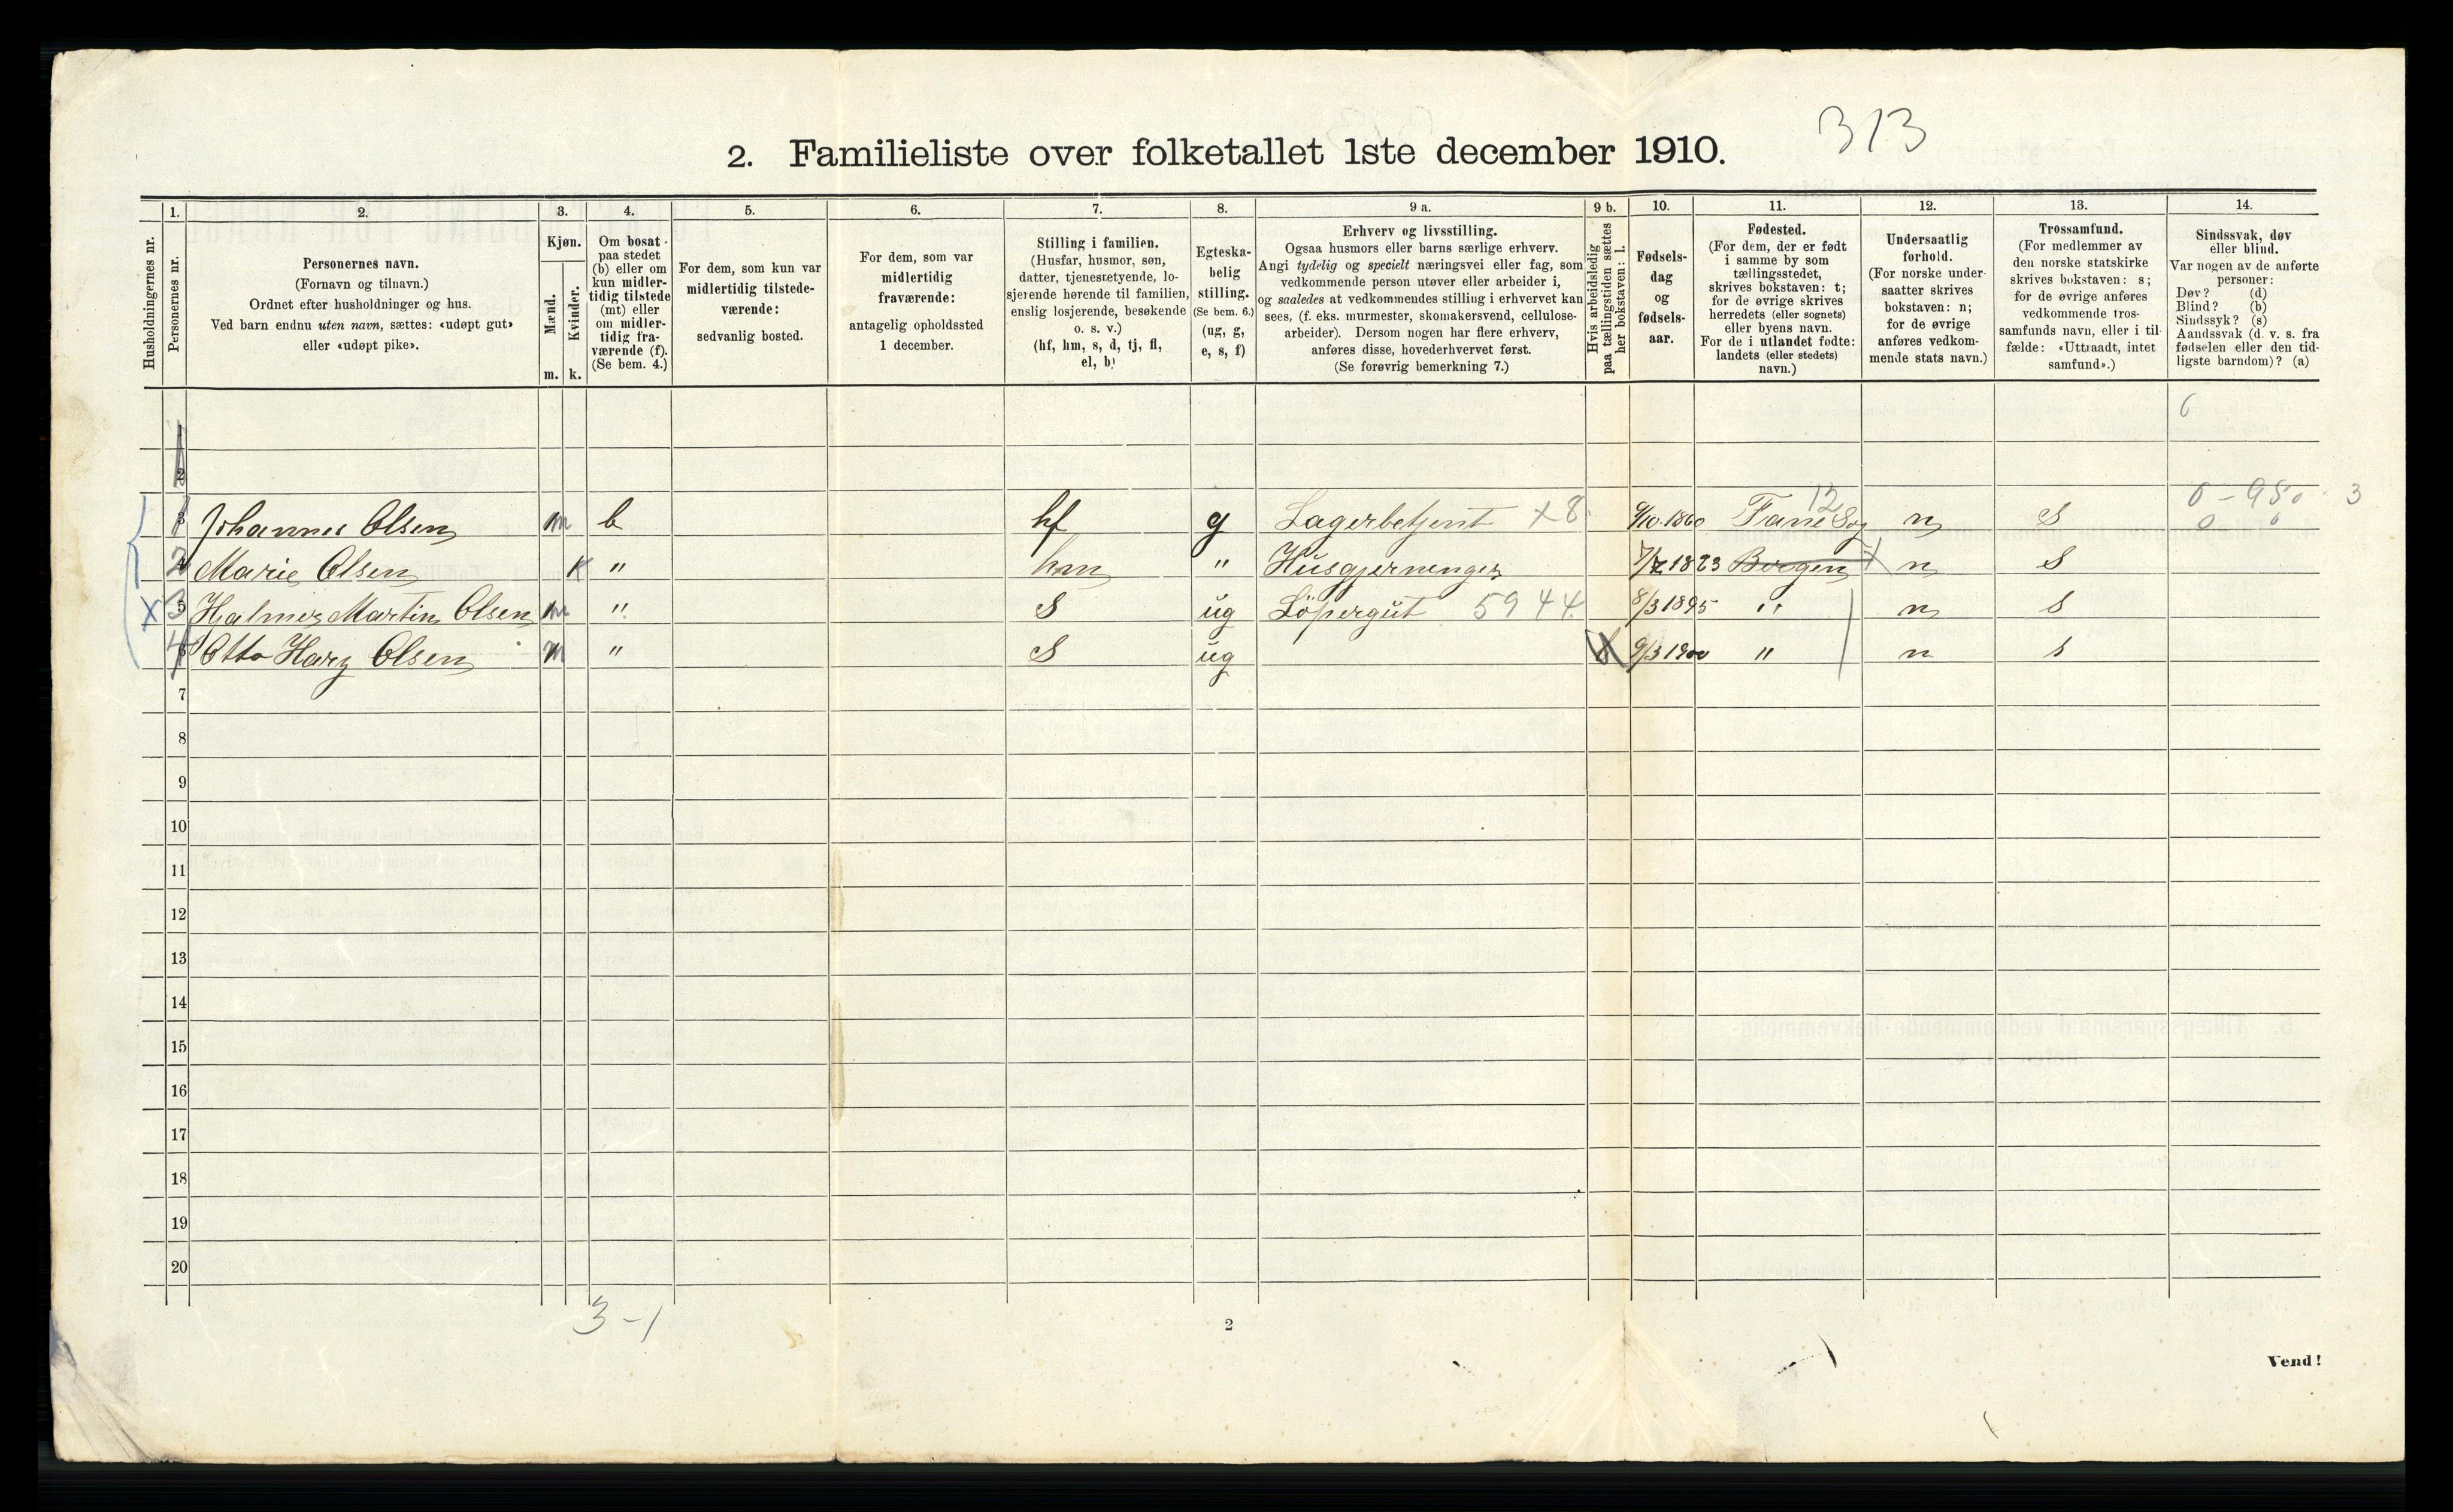 313
2. Familieliste over folketallet 1ste december 1910.
Husholdningernes nr.
1.
Personernes nr.
2.
Personernes navn.
(Fornavn og tilnavn.)
Ordnet efter husholdninger og hus.
Ved barn endnu uten navn, sættes: «udøpt gut»
eller «udøpt pike».
3.
Kjøn.
Mænd.
Kvinder.
m. k.
4.
Om bosat
paa stedet
(b) eller om
kun midler-
tidig tilstede
(mt) eller
om midler-
tidig fra-
værende (f).
(Se bem. 4.)
5.
For dem, som kun var
midlertidig tilstede-
værende:
sedvanlig bosted.
6.
For dem, som var
midlertidig
fraværende:
antagelig opholdssted
1 december.
7.
Stilling i familien.
(Husfar, husmor, søn,
datter, tjenestetyende, lo-
sjerende hørende til familien,
enslig losjerende, besøkende
o. s. v.)
(hf, hm, s, d, tj, fl,
el, b)
8.
Egteska-
belig
stilling.
(Se bem. 6.)
(ug, g,
e, s, f)
9 a.
Erhverv og livsstilling.
Ogsaa husmors eller barns særlige erhverv.
Angi tydelig og specielt næringsvei eller fag, som
vedkommende person utøver eller arbeider i,
og saaledes at vedkommendes stilling i erhvervet kan
sees, (f. eks. murmester, skomakersvend, cellulose-
arbeider). Dersom nogen har flere erhverv,
anføres disse, hovederhvervet først.
(Se forøvrig bemerkning 7.)
9 b.
Hvis arbeidsledig
paa tællingstiden sættes
her bokstaven: l.
10.
Fødsels-
dag
og
fødsels-
aar.
11.
Fødested.
(For dem, der er født
i samme by som
tællingsstedet,
skrives bokstaven: t;
for de øvrige skrives
herredets (eller sognets)
eller byens navn.
For de i utlandet fødte:
landets (eller stedets)
navn.)
12.
Undersaatlig
forhold.
(For norske under-
saatter skrives
bokstaven: n;
for de øvrige
anføres vedkom-
mende stats navn.)
13.
Trossamfund.
(For medlemmer av
den norske statskirke
skrives bokstaven: s;
for de øvrige anføres
vedkommende tros-
samfunds navn, eller i til-
fælde: «Uttraadt, intet
samfund».)
14.
Sindssvak, døv
eller blind.
Var nogen av de anførte
personer:
Døv? (d)
Blind? (b)
Sindssyk? (s)
Aandssvak (d. v. s. fra
fødselen eller den tid-
ligste barndom)? (a)
1
2
1 Johannes Olsen m b hf g Lagerbetjent x8 9/10 1860 Fane Sog 12 n S
2 Marie Olsen k " hm " Husgjerninger Bergen n S
X 3 Hjalmer Martin Olsen m " S ug Löpergut 5944 8/3 1895 " n S
4 Otto Harry Olsen m " S ug 9/3 1900 " n s
7
8
9
10
11
12
13
14
15
16
17
18
19
20
3-1
2
Vend!